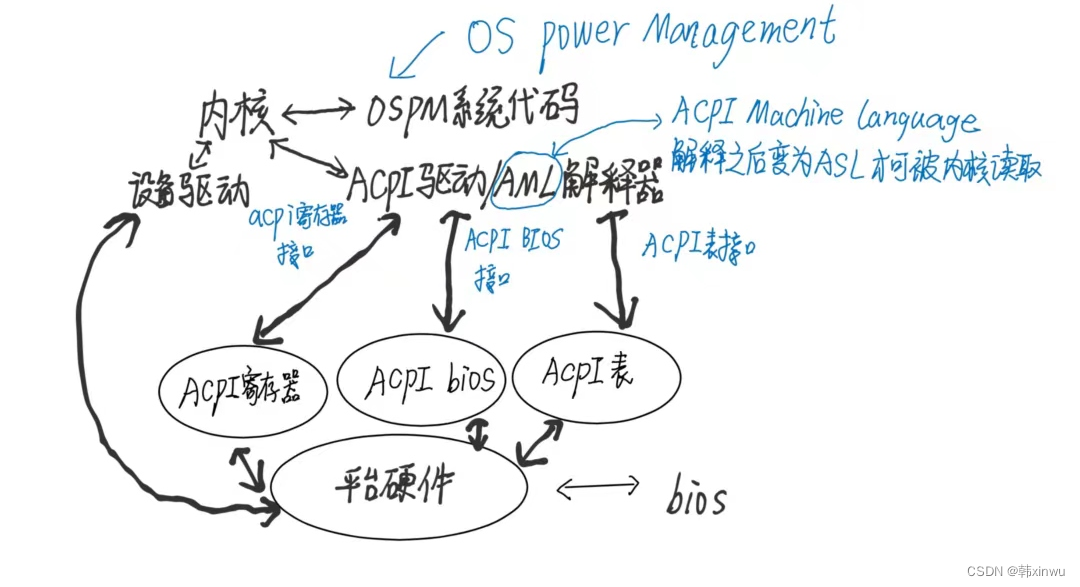 OS power Management
内核 OSPM系统代码
ACPI Machine Language
解释之后变为ASL才可被内核读取
设备驱动 ACPI驱动/AML解释器
acpi寄存器
接口
ACPI BIOS
接口
ACPI表接口
ACPI寄存器 ACPI bios ACPI表
平台硬件 bios
CSDN @韩xinwu